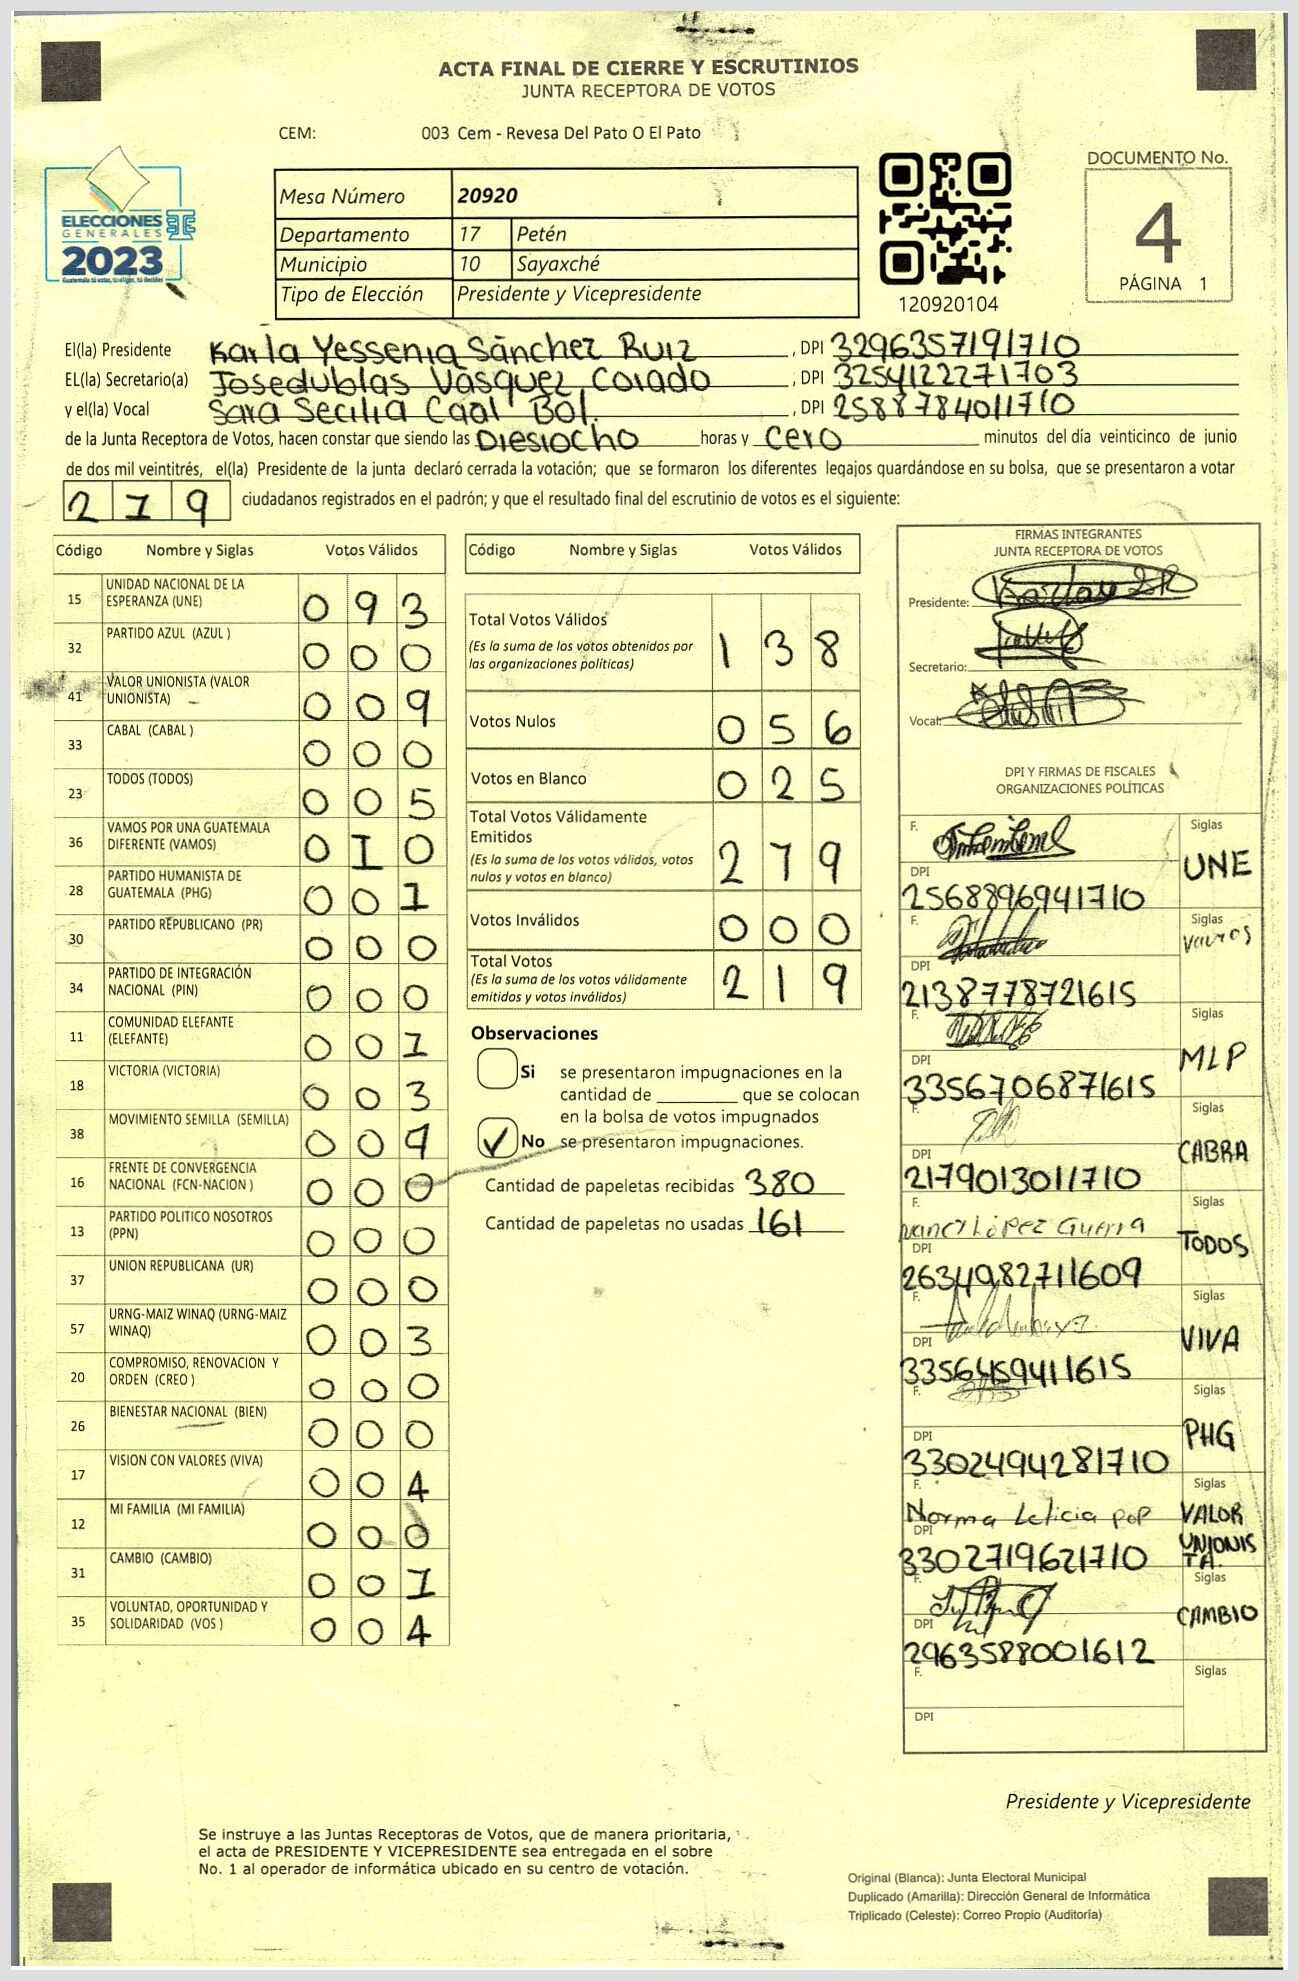 ACTA FINAL DE CIERRE Y ESCRUTINIOS
JUNTA RECEPTORA DE VOTOS
CEM: 003 Cem - Revesa Del Pato O El Pato
ELECCIONES
GENERALES
2023
Mesa Número 20920
Departamento 17 Petén
Municipio 10 Sayaxché
Tipo de Elección Presidente y Vicepresidente
120920104
DOCUMENTO No.
4
PÁGINA 1
El(la) Presidente Karla Yessenia Sánchez Ruiz, DPI 3296357191710
EL(la) Secretario(a) Josedublas Vásquez Corado, DPI 3254122271703
y el(la) Vocal Sara Secilia Caal Bol., DPI 2588784011710
de la Junta Receptora de Votos, hacen constar que siendo las Diesiocho horas y cero minutos del día veinticinco de junio
de dos mil veintitrés, el(la) Presidente de la junta declaró cerrada la votación; que se formaron los diferentes legajos quardándose en su bolsa, que se presentaron a votar
219 ciudadanos registrados en el padrón; y que el resultado final del escrutinio de votos es el siguiente:
Código Nombre y Siglas Votos Válidos
15 UNIDAD NACIONAL DE LA ESPERANZA (UNE) 093
32 PARTIDO AZUL (AZUL ) 000
41 VALOR UNIONISTA (VALOR UNIONISTA) 009
33 CABAL (CABAL ) 000
23 TODOS (TODOS) 005
36 VAMOS POR UNA GUATEMALA DIFERENTE (VAMOS) 010
28 PARTIDO HUMANISTA DE GUATEMALA (PHG) 001
30 PARTIDO REPUBLICANO (PR) 000
34 PARTIDO DE INTEGRACIÓN NACIONAL (PIN) 000
11 COMUNIDAD ELEFANTE (ELEFANTE) 001
18 VICTORIA (VICTORIA) 003
38 MOVIMIENTO SEMILLA (SEMILLA) 004
16 FRENTE DE CONVERGENCIA NACIONAL (FCN-NACION ) 000
13 PARTIDO POLITICO NOSOTROS (PPN) 000
37 UNION REPUBLICANA (UR) 000
57 URNG-MAIZ WINAQ (URNG-MAIZ WINAQ) 003
20 COMPROMISO, RENOVACION Y ORDEN (CREO ) 000
26 BIENESTAR NACIONAL (BIEN) 000
17 VISION CON VALORES (VIVA) 004
12 MI FAMILIA (MI FAMILIA) 000
31 CAMBIO (CAMBIO) 001
35 VOLUNTAD, OPORTUNIDAD Y SOLIDARIDAD (VOS ) 004
Código Nombre y Siglas Votos Válidos
Total Votos Válidos 138
(Es la suma de los votos obtenidos por
las organizaciones políticas)
Votos Nulos 056
Votos en Blanco 025
Total Votos Válidamente
Emitidos 219
(Es la suma de los votos válidos, votos
nulos y votos en blanco)
Votos Inválidos 000
Total Votos 219
(Es la suma de los votos válidamente
emitidos y votos inválidos)
Observaciones
Si se presentaron impugnaciones en la
cantidad de ________ que se colocan
en la bolsa de votos impugnados
✓ No se presentaron impugnaciones.
Cantidad de papeletas recibidas 380
Cantidad de papeletas no usadas 161
FIRMAS INTEGRANTES
JUNTA RECEPTORA DE VOTOS
Presidente:
Secretario:
Vocal:
DPI Y FIRMAS DE FISCALES
ORGANIZACIONES POLÍTICAS
F. Siglas UNE
DPI 2568896941710
F. Siglas Vamos
DPI 2138778721615
F. Siglas MLP
DPI 3356706871615
F. Siglas CABRA
DPI 2179013011710
F. Nanci López Guerra Siglas TODOS
DPI 2634982711609
F. Siglas VIVA
DPI 3356459411615
F. Siglas PHG
DPI 3302494281710
F. Norma Leticia pop Siglas VALOR UNIONISTA.
DPI 3302719621710
F. Siglas CAMBIO
DPI 2963588001612
F. Siglas
DPI
Presidente y Vicepresidente
Se instruye a las Juntas Receptoras de Votos, que de manera prioritaria,
el acta de PRESIDENTE Y VICEPRESIDENTE sea entregada en el sobre
No. 1 al operador de informática ubicado en su centro de votación.
Original (Blanca): Junta Electoral Municipal
Duplicado (Amarilla): Dirección General de Informática
Triplicado (Celeste): Correo Propio (Auditoría)